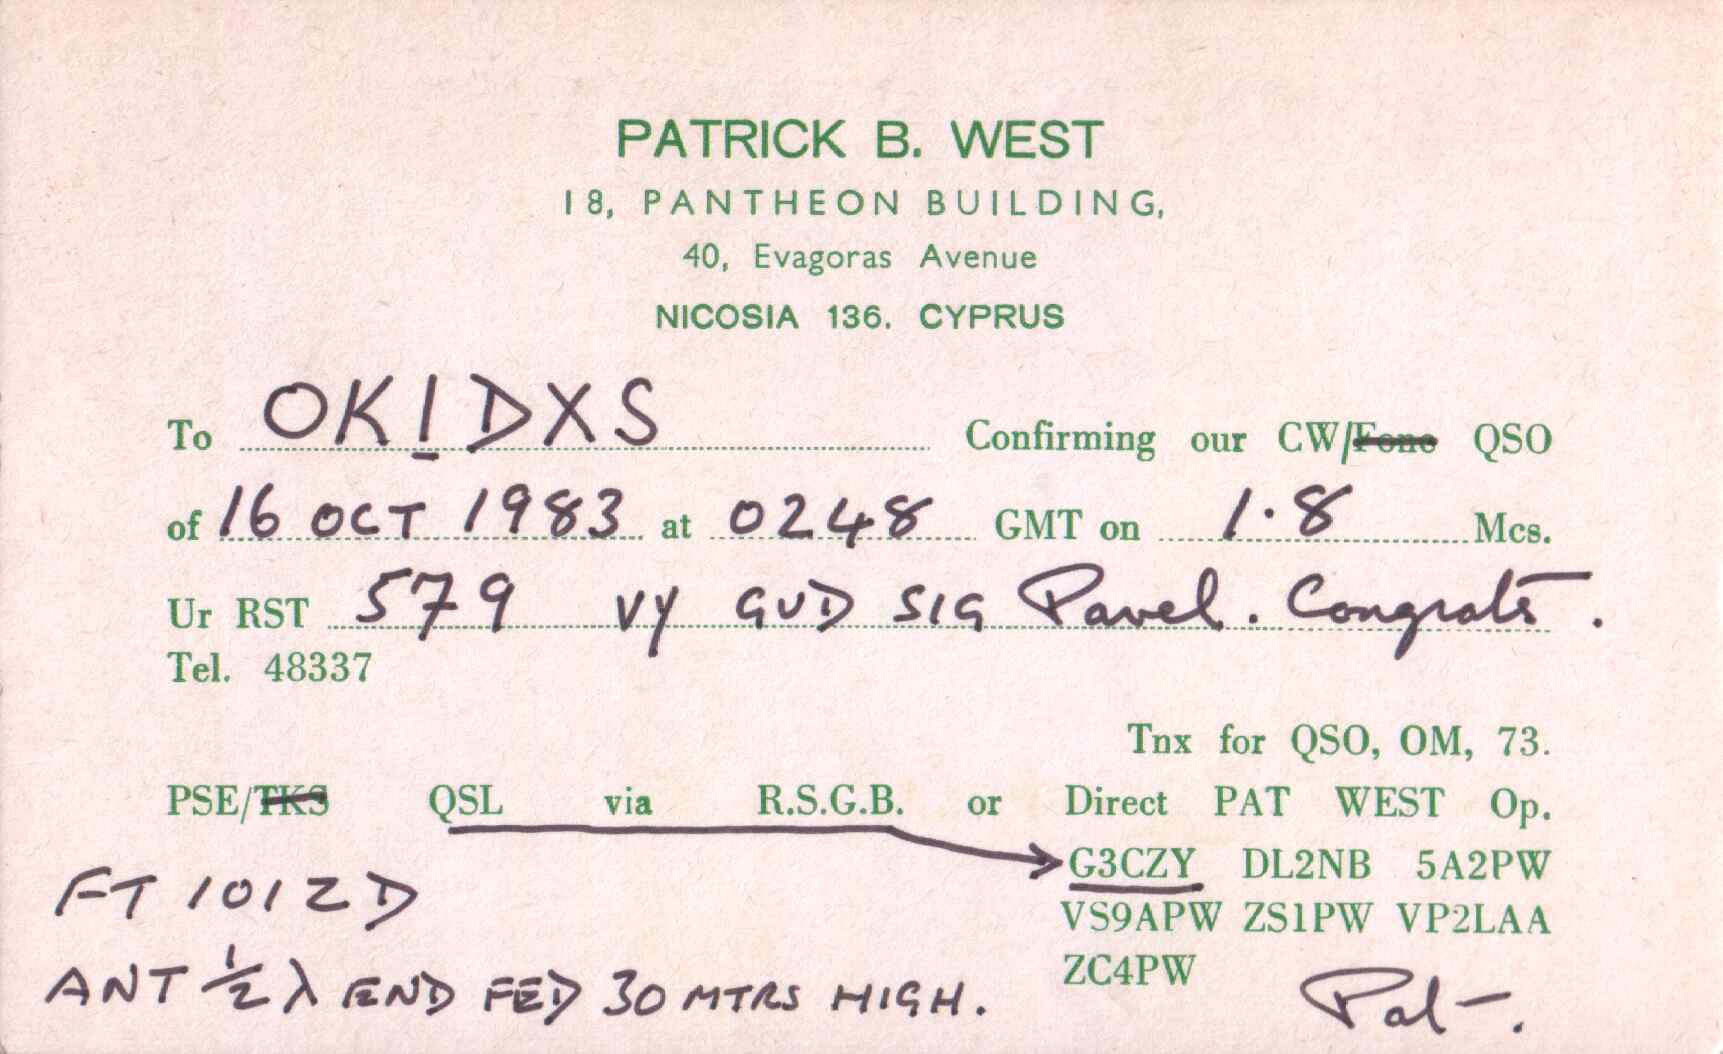 PATRICK B. WEST
18, PANTHEON BUILDING,
40, Evagoras Avenue
NICOSIA 136. CYPRUS
To OK1DXS Confirming our CW/Fone QSO
of 16 OCT 1983 at 0248 GMT on 1.8 Mcs.
Ur RST 579 VY GUD SIG Pavel. Congrats.
Tel. 48337
Tnx for QSO, OM, 73.
PSE/TKS QSL via R.S.G.B. or Direct PAT WEST Op.
G3CZY DL2NB 5A2PW
FT 101ZD
VS9APW ZS1PW VP2LAA
ZC4PW
ANT ½ λ END FED 30 MTRS HIGH.
Pat-.